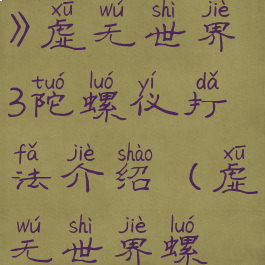 xū wú shì jiè
》虚无世界
tuó luó yí dǎ
3陀螺仪打
fǎ jiè shào xū
法介绍（虚
wú shì jiè luó
无世界螺